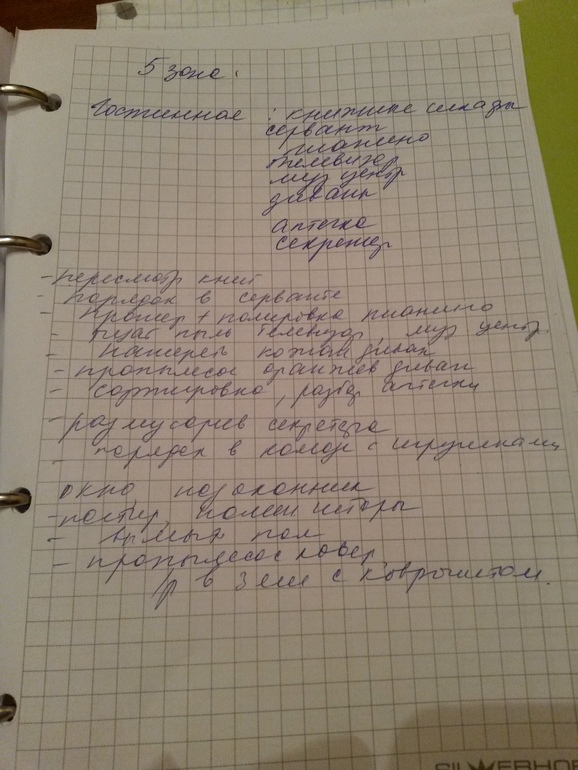 5 зона:
Гостинная : книжные шкафы
сервант
пианино
телевизор
муз центр
диваны
аптечка
секретер
- пересмотр книг
- порядок в серванте
- протер + полировка пианино
пыль телевизор, муз центр.
- натереть кожан диван
- пропылесос оранжев диван
- сортировка, разбор аптечки
- размусорив секретера
порядок в комоде с игрушками
окно, подоконник
- постир, шторы
- вымыть пол
- пропылесос ковер
в зале с ковром
SILWERHOF